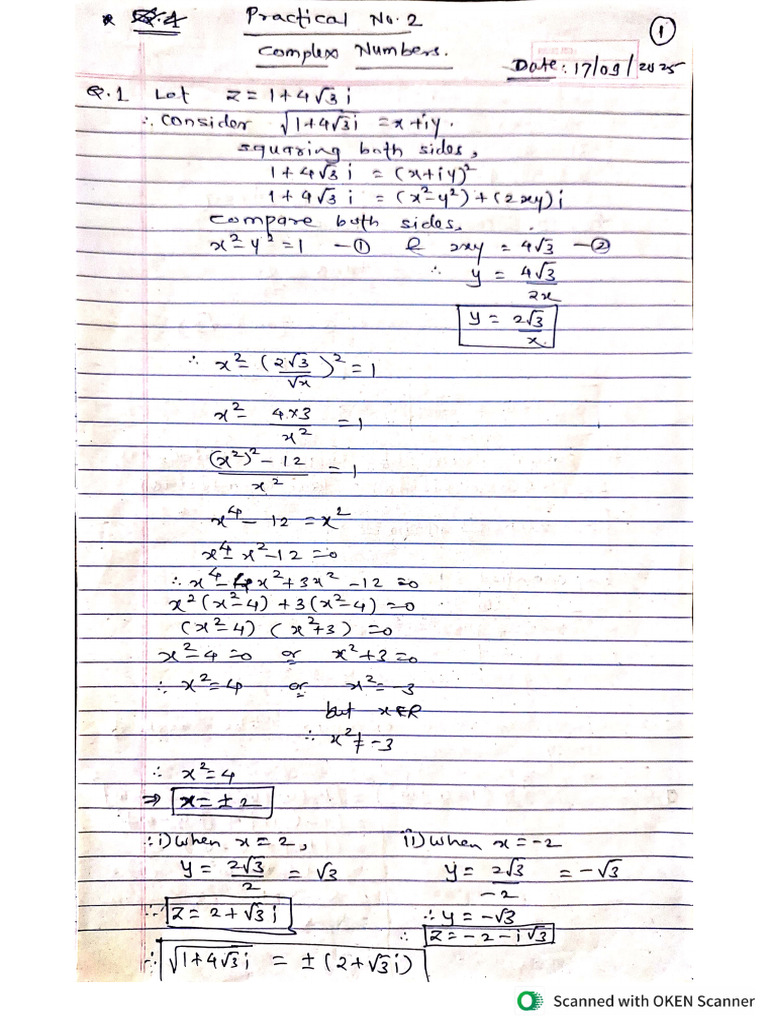 * Practical No. 2
①
Complex Numbers.
Date: 17/09/2025
Q.1 Let z = 1+4√3 i
∴ Consider √(1+4√3i) = x+iy.
squaring both sides,
1+4√3 i = (x+iy)²
1+4√3 i = (x²-y²)+(2xy)i
compare both sides,
x²-y²=1 —① & 2xy = 4√3 —②
∴ y = 4√3/2x
y = 2√3/x.
∴ x²-(2√3/√x)² = 1
x²- 4×3/x² = 1
(x²)²-12/x² = 1
x⁴-12 = x²
x⁴-x²-12 =0
∴ x⁴-4x²+3x²-12 =0
x²(x²-4)+3(x²-4)=0
(x²-4) (x²+3) =0
x²-4=0 or x²+3=0
∴ x²=4 or x²=-3
but x∈R
∴ x²≠-3
∴ x²=4
⇒ x=±2
∴ i) when x=2, ii) when x=-2
y = 2√3/2 = √3 y = 2√3/-2 = -√3
∴ y = -√3
∴ z = 2+√3 i ∴ z = -2-i√3
∴ √(1+4√3 i) = ±(2+√3 i)
Scanned with OKEN Scanner